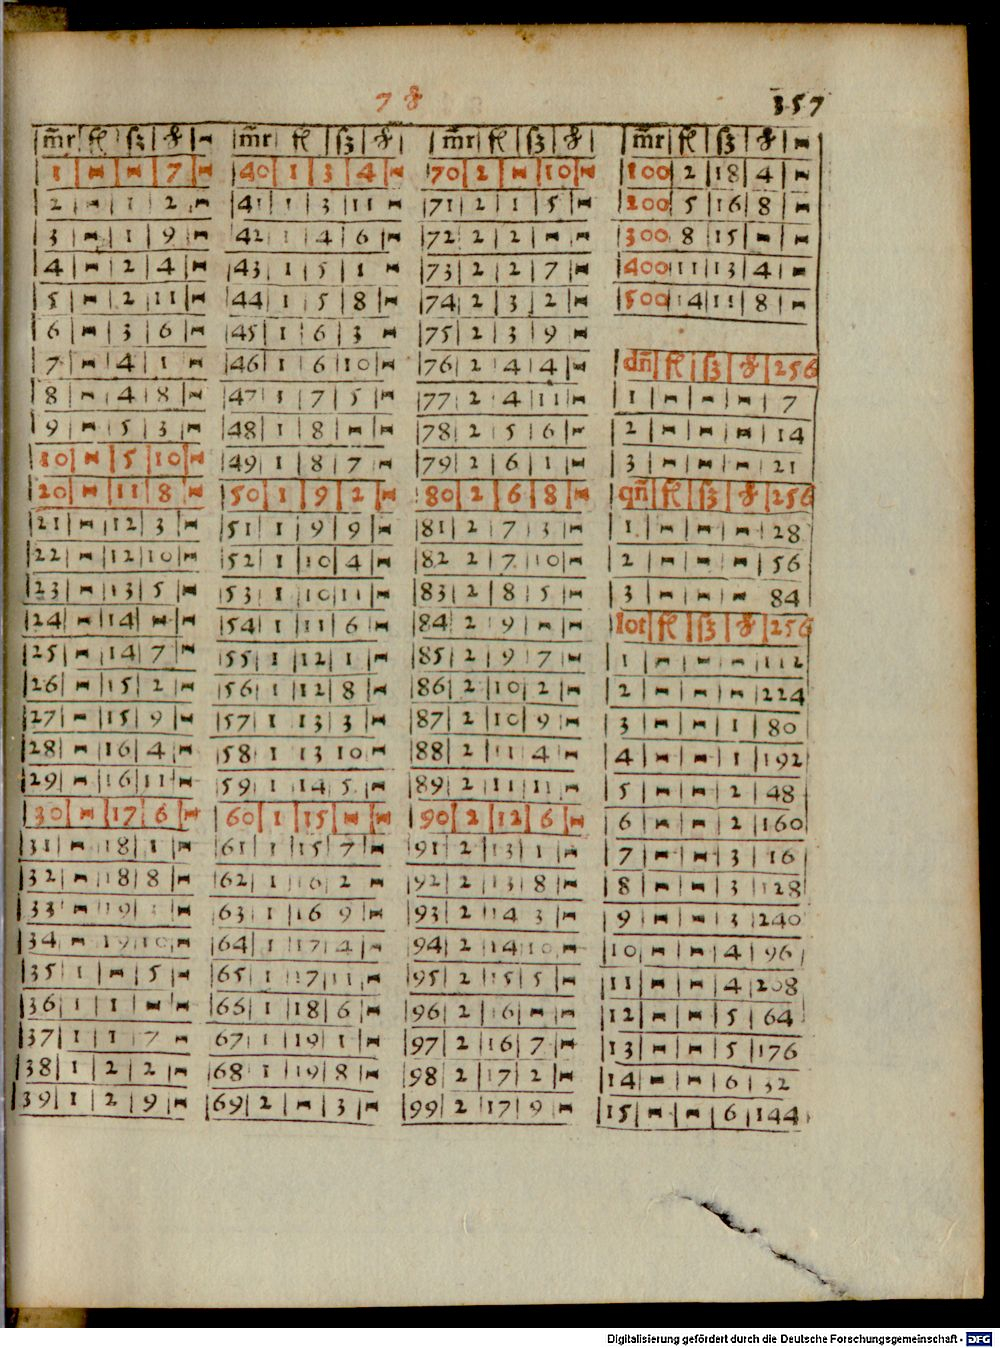 7 ₰
357
m̃r | fl | ß | ₰ | -
1 | - | - | 7 | -
2 | - | 1 | 2 | -
3 | - | 1 | 9 | -
4 | - | 2 | 4 | -
5 | - | 2 | 11 | -
6 | - | 3 | 6 | -
7 | - | 4 | 1 | -
8 | - | 4 | 8 | -
9 | - | 5 | 3 | -
10 | - | 5 | 10 | -
20 | - | 11 | 8 | -
21 | - | 12 | 3 | -
22 | - | 12 | 10 | -
23 | - | 13 | 5 | -
24 | - | 14 | - | -
25 | - | 14 | 7 | -
26 | - | 15 | 2 | -
27 | - | 15 | 9 | -
28 | - | 16 | 4 | -
29 | - | 16 | 11 | -
30 | - | 17 | 6 | -
31 | - | 18 | 1 | -
32 | - | 18 | 8 | -
33 | - | 19 | 3 | -
34 | - | 19 | 10 | -
35 | 1 | - | 5 | -
36 | 1 | 1 | - | -
37 | 1 | 1 | 7 | -
38 | 1 | 2 | 2 | -
39 | 1 | 2 | 9 | -
m̃r | fl | ß | ₰
40 | 1 | 3 | 4 | -
41 | 1 | 3 | 11 | -
42 | 1 | 4 | 6 | -
43 | 1 | 5 | 1 | -
44 | 1 | 5 | 8 | -
45 | 1 | 6 | 3 | -
46 | 1 | 6 | 10 | -
47 | 1 | 7 | 5 | -
48 | 1 | 8 | - | -
49 | 1 | 8 | 7 | -
50 | 1 | 9 | 2 | -
51 | 1 | 9 | 9 | -
52 | 1 | 10 | 4 | -
53 | 1 | 10 | 11 | -
54 | 1 | 11 | 6 | -
55 | 1 | 12 | 1 | -
56 | 1 | 12 | 8 | -
57 | 1 | 13 | 3 | -
58 | 1 | 13 | 10 | -
59 | 1 | 14 | 5 | -
60 | 1 | 15 | - | -
61 | 1 | 15 | 7 | -
62 | 1 | 16 | 2 | -
63 | 1 | 16 | 9 | -
64 | 1 | 17 | 4 | -
65 | 1 | 17 | 11 | -
66 | 1 | 18 | 6 | -
67 | 1 | 19 | 1 | -
68 | 1 | 19 | 8 | -
69 | 2 | - | 3 | -
m̃r | fl | ß | ₰
70 | 2 | - | 10 | -
71 | 2 | 1 | 5 | -
72 | 2 | 2 | - | -
73 | 2 | 2 | 7 | -
74 | 2 | 3 | 2 | -
75 | 2 | 3 | 9 | -
76 | 2 | 4 | 4 | -
77 | 2 | 4 | 11 | -
78 | 2 | 5 | 6 | -
79 | 2 | 6 | 1 | -
80 | 2 | 6 | 8 | -
81 | 2 | 7 | 3 | -
82 | 2 | 7 | 10 | -
83 | 2 | 8 | 5 | -
84 | 2 | 9 | - | -
85 | 2 | 9 | 7 | -
86 | 2 | 10 | 2 | -
87 | 2 | 10 | 9 | -
88 | 2 | 11 | 4 | -
89 | 2 | 11 | 11 | -
90 | 2 | 12 | 6 | -
91 | 2 | 13 | 1 | -
92 | 2 | 13 | 8 | -
93 | 2 | 14 | 3 | -
94 | 2 | 14 | 10 | -
95 | 2 | 15 | 5 | -
96 | 2 | 16 | - | -
97 | 2 | 16 | 7 | -
98 | 2 | 17 | 2 | -
99 | 2 | 17 | 9 | -
m̃r | fl | ß | ₰ | -
100 | 2 | 18 | 4 | -
200 | 5 | 16 | 8 | -
300 | 8 | 15 | - | -
400 | 11 | 13 | 4 | -
500 | 14 | 11 | 8 | -
dñ | fl | ß | ₰ | 256
1 | - | - | - | 7
2 | - | - | - | 14
3 | - | - | - | 21
qñ | fl | ß | ₰ | 256
1 | - | - | - | 28
2 | - | - | - | 56
3 | - | - | - | 84
lot | fl | ß | ₰ | 256
1 | - | - | - | 112
2 | - | - | - | 224
3 | - | - | 1 | 80
4 | - | - | 1 | 192
5 | - | - | 2 | 48
6 | - | - | 2 | 160
7 | - | - | 3 | 16
8 | - | - | 3 | 128
9 | - | - | 3 | 240
10 | - | - | 4 | 96
11 | - | - | 4 | 208
12 | - | - | 5 | 64
13 | - | - | 5 | 176
14 | - | - | 6 | 32
15 | - | - | 6 | 144
Digitalisierung gefördert durch die Deutsche Forschungsgemeinschaft - DFG